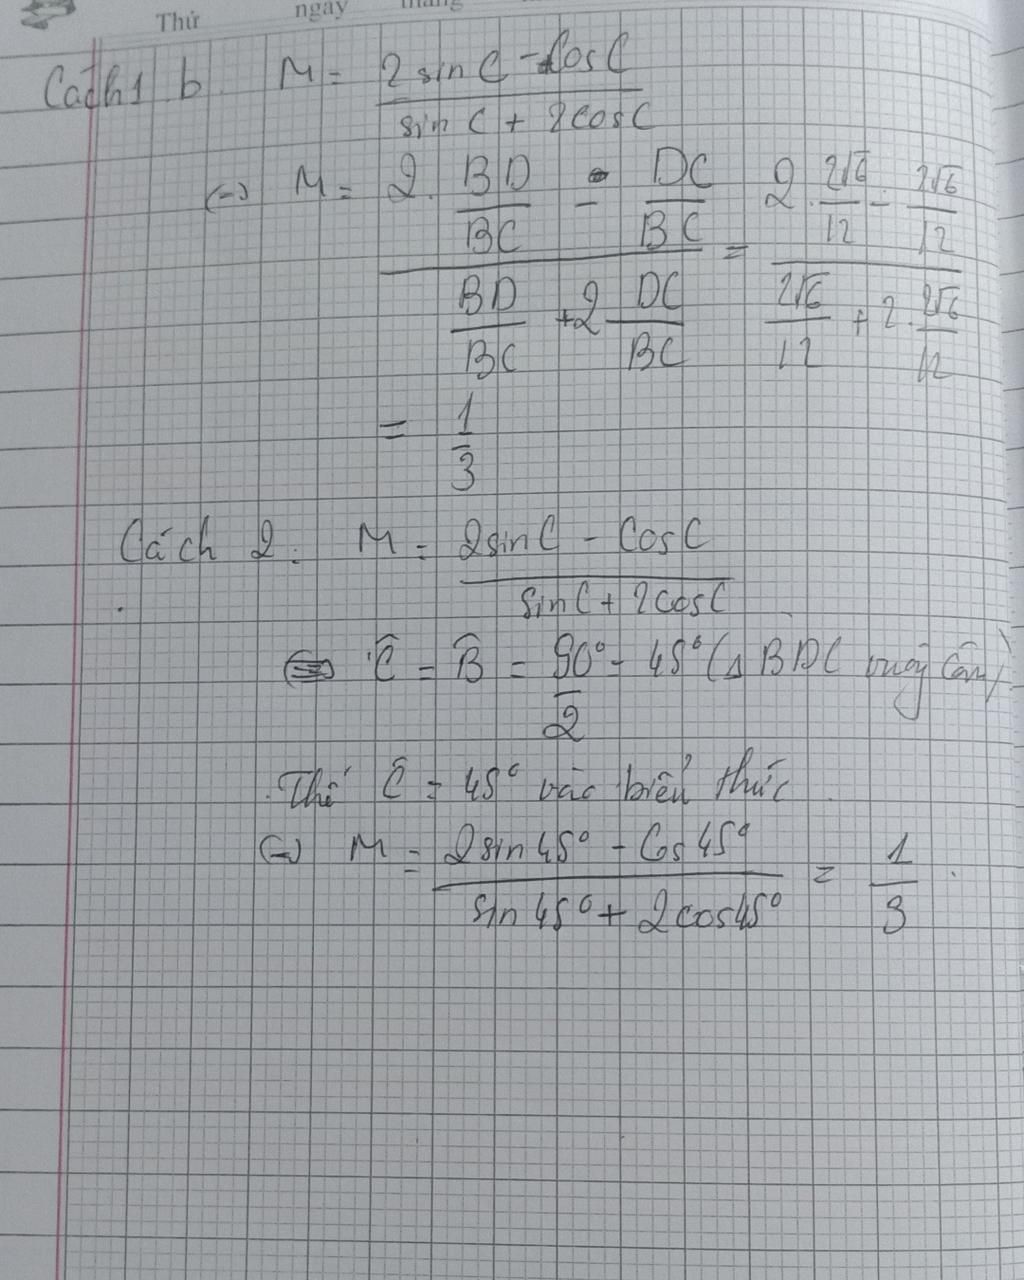 Thứ ngày tháng
Cách1 b M = (2 sin C - Cos C) / (sin C + 2 cos C)
(=) M = (2. BD/BC - DC/BC) / (BD/BC + 2 DC/BC) = (2 . 2√6/12 - 2√6/12) / (2√6/12 + 2. 2√6/12)
= 1/3
Cách 2: M = (2 sin C - Cos C) / (sin C + 2 cos C)
Ĉ = B̂ = 90°/2 = 45° (Δ BDC vuông cân)
Thế Ĉ = 45° vào biểu thức
(=) M = (2 sin 45° - Cos 45°) / (sin 45° + 2 cos 45°) = 1/3.